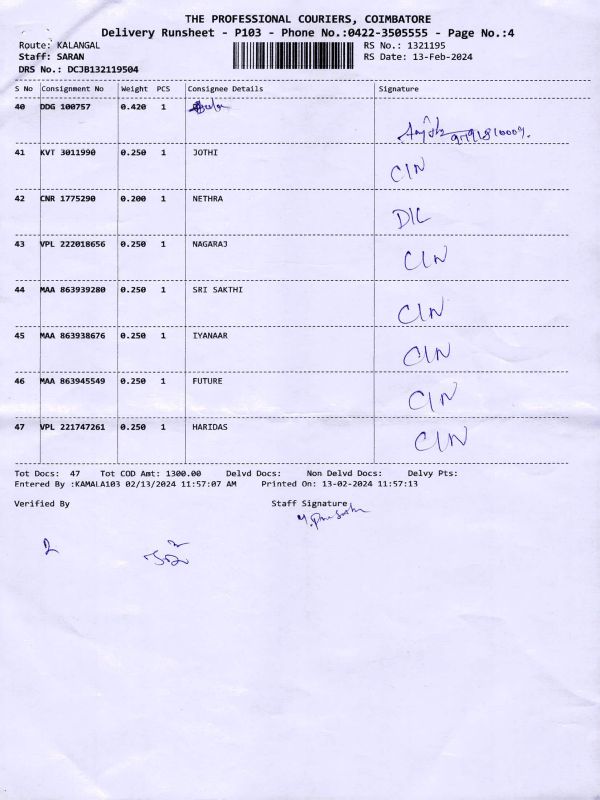 THE PROFESSIONAL COURIERS, COIMBATORE
Delivery Runsheet - P103 - Phone No.:0422-3505555 - Page No.:4
Route: KALANGAL RS No.: 1321195
Staff: SARAN RS Date: 13-Feb-2024
DRS No.: DCJB132119504
S No Consignment No Weight PCS Consignee Details Signature
40 DDG 100757 0.420 1
41 KVT 3011990 0.250 1 JOTHI CIN
42 CNR 1775290 0.200 1 NETHRA DIL
43 VPL 222018656 0.250 1 NAGARAJ CIN
44 MAA 863939280 0.250 1 SRI SAKTHI CIN
45 MAA 863938676 0.250 1 IYANAAR CIN
46 MAA 863945549 0.250 1 FUTURE CIN
47 VPL 221747261 0.250 1 HARIDAS CIN
Tot Docs: 47 Tot COD Amt: 1300.00 Delvd Docs: Non Delvd Docs: Delvy Pts:
Entered By :KAMALA103 02/13/2024 11:57:07 AM Printed On: 13-02-2024 11:57:13
Verified By Staff Signature